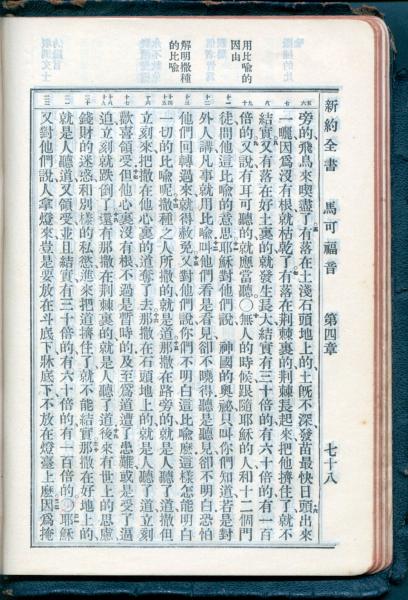 新約全書 馬可福音 第四章 七十八
用比喻的
因由
解明撒種
的比喻
旁的飛鳥來喫盡了有落在土淺石頭地上的土旣不深發苗最快日頭出來
一曬因爲沒有根就枯乾了有落在荆棘裏的荆棘長起來把他擠住了就不
結實又有落在好土裏的就發生長大結實有三十倍的有六十倍的有一百
倍的又說有耳可聽的就應當聽〇無人的時候跟隨耶穌的人和十二個門
徒問他這比喻的意思耶穌對他們說 神國的奧祕只叫你們知道若是對
外人講凡事就用比喻叫他們看是看見卻不曉得聽是聽見卻不明白恐怕
他們回轉過來就得赦免又對他們說你們不明白這比喻麽這樣怎能明白
一切的比喻呢撒種之人所撒的就是道那撒在路旁的就是人聽了道撒但
立刻來把撒在他心裏的道奪了去那撒在石頭地上的就是人聽了道立刻
歡喜領受但他心裏沒有根不過是暫時的及至爲道遭了患難或是受了逼
迫立刻就跌倒了還有那撒在荆棘裏的就是人聽了道後來有世上的思慮
錢財的迷惑和別樣的私慾進來把道擠住了就不能結實那撒在好地上的
就是人聽道又領受並且結實有三十倍的有六十倍的有一百倍的〇耶穌
又對他們說人拿燈來豈是要放在斗底下牀底下不放在燈臺上麽因爲掩